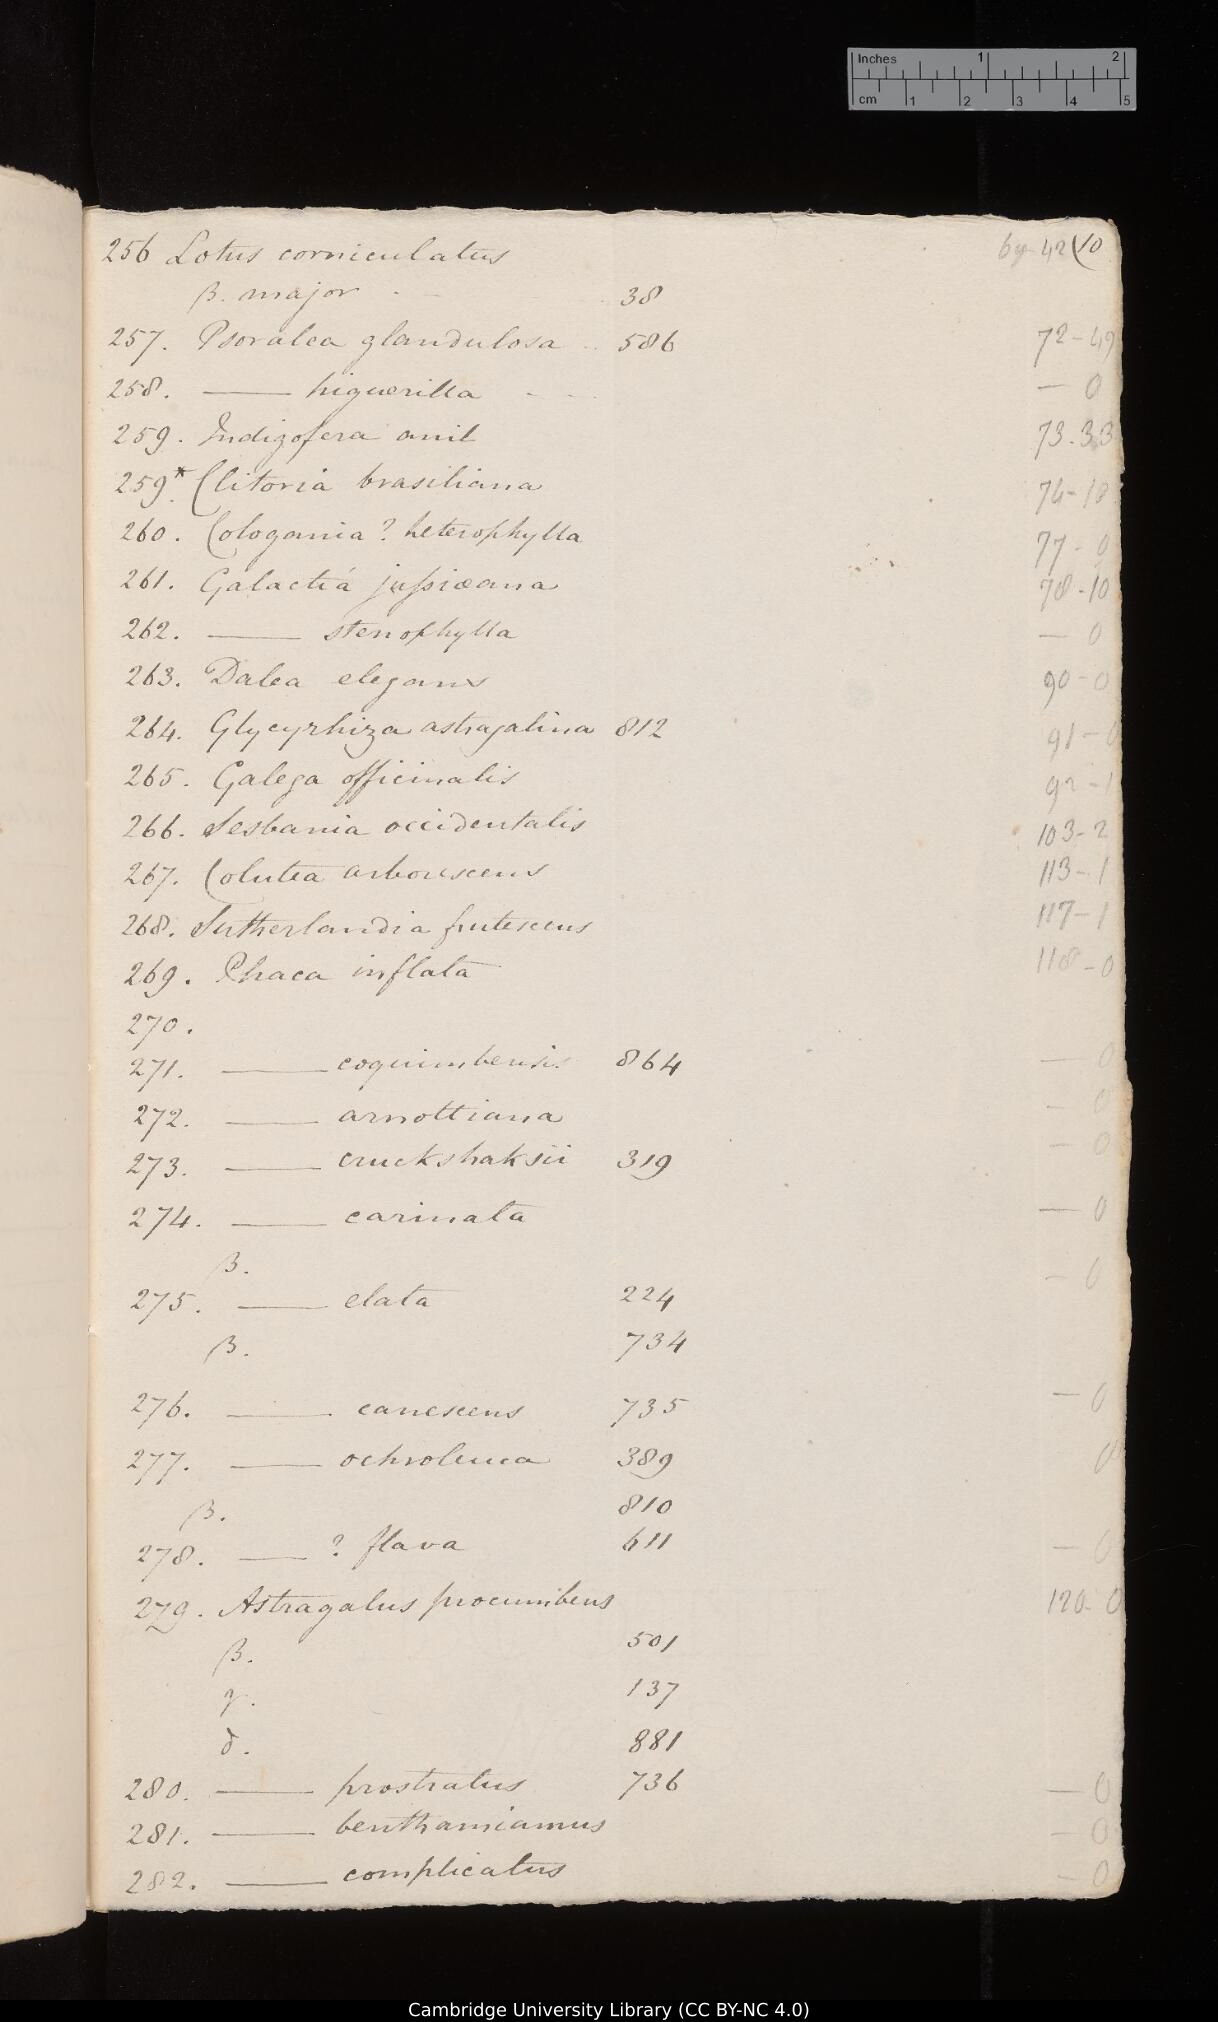 Inches 1 2
cm 1 2 3 4 5
256 Lotus corniculatus 69-42 (10
β. major 38
257. Psoralea glandulosa 586 72-49
258. —— higuerilla — 0
259. Indigofera anil 73.33
259*. Clitoria brasiliana 74-10
260. Cologania? heterophylla 77-0
261. Galactia jussiæana 78-10
262. —— stenophylla — 0
263. Dalea elegans 90-0
264. Glycyrhiza astragalina 812 91-0
265. Galega officinalis 92-1
266. Sesbania occidentalis 103-2
267. Colutea arborescens 113-1
268. Sutherlandia frutescens 117-1
269. Phaca inflata 118-0
270.
271. —— coquimbensis 864 — 0
272. —— arnottiana — 0
273. —— cruckshaksii 319 — 0
274. —— carinata — 0
β.
275. —— elata 224 — 0
β. 734
276. —— canescens 735 — 0
277. —— ochroleuca 389 0
β. 810
278. —— ? flava 611 — 0
279. Astragalus procumbens 120-0
β. 501
γ. 137
δ. 881
280. —— prostratus 736 — 0
281. —— benthamianus — 0
282. —— complicatus — 0
Cambridge University Library (CC BY-NC 4.0)